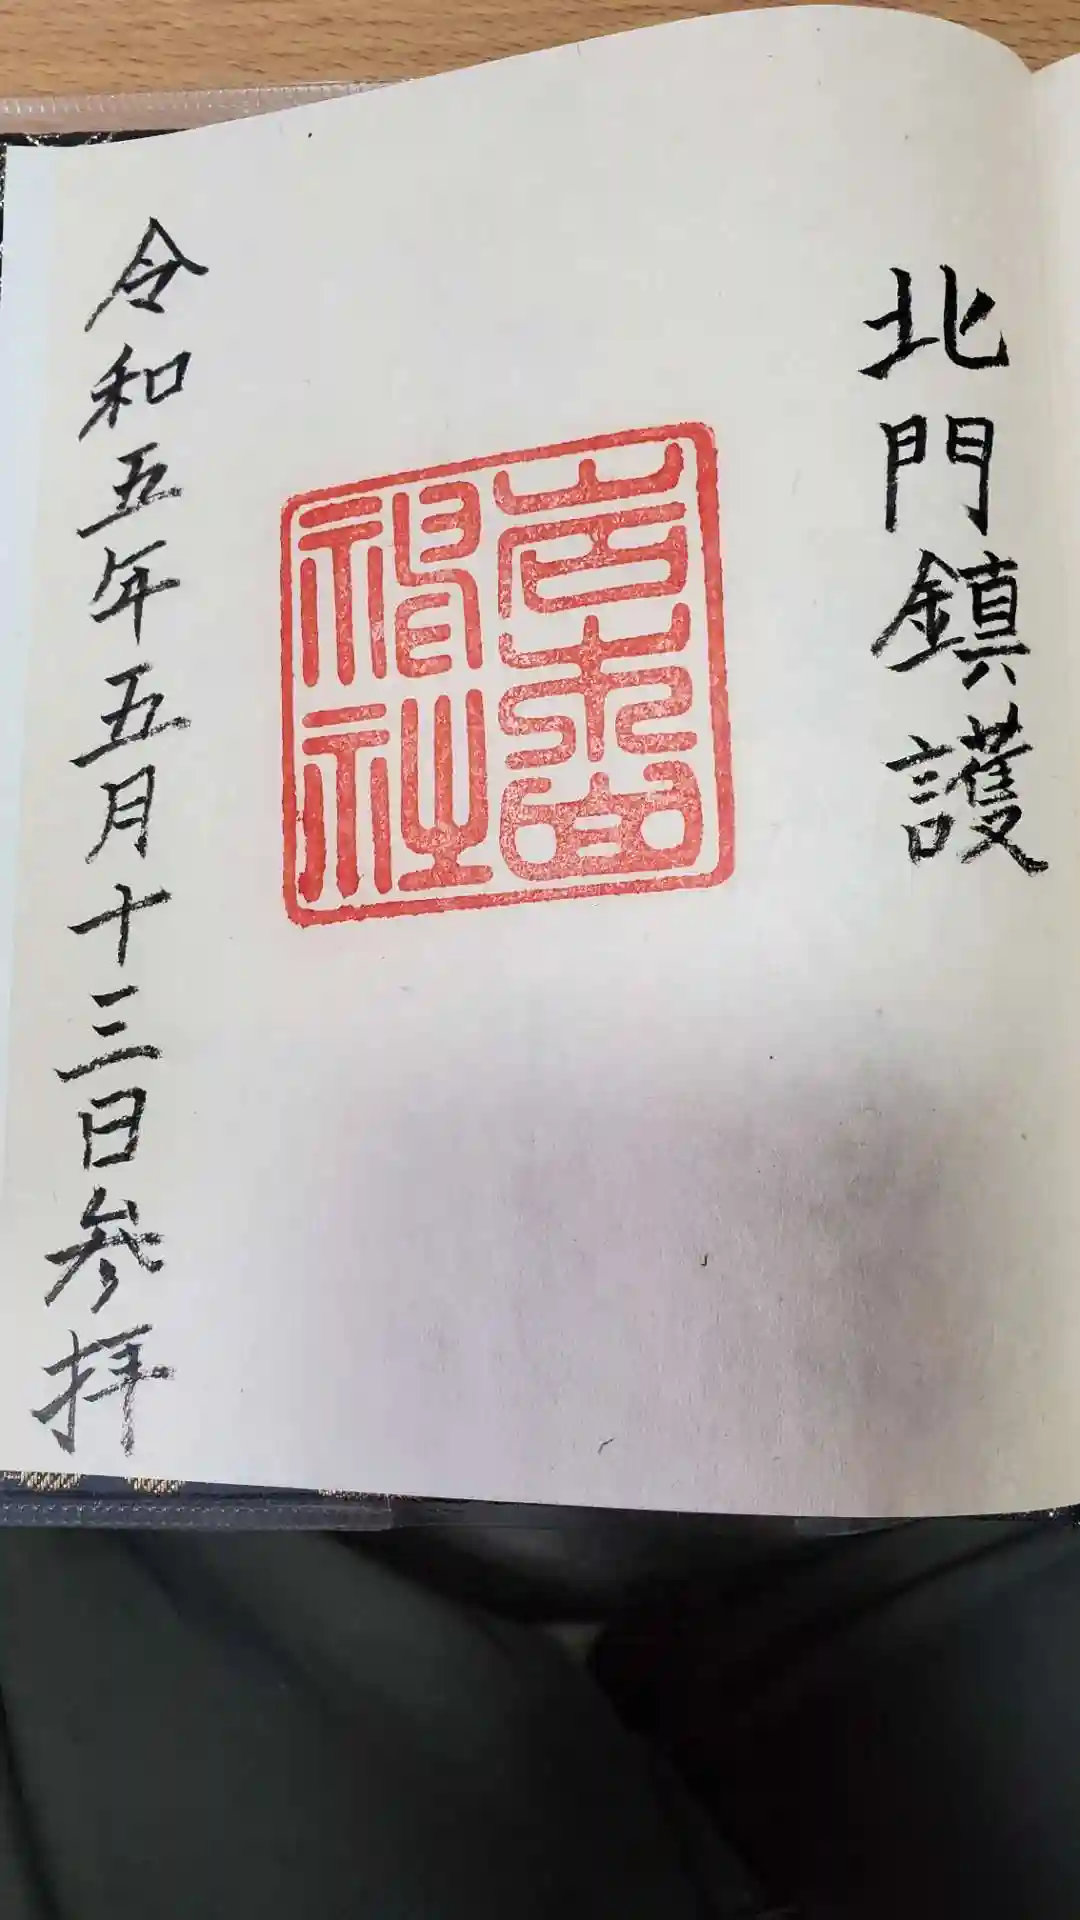 北門鎮護
神社
令和五年五月十三日参拝